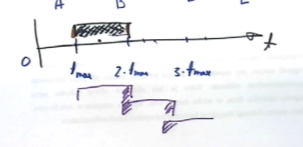 A B
0 t
tmax 2·tmax 3·tmax